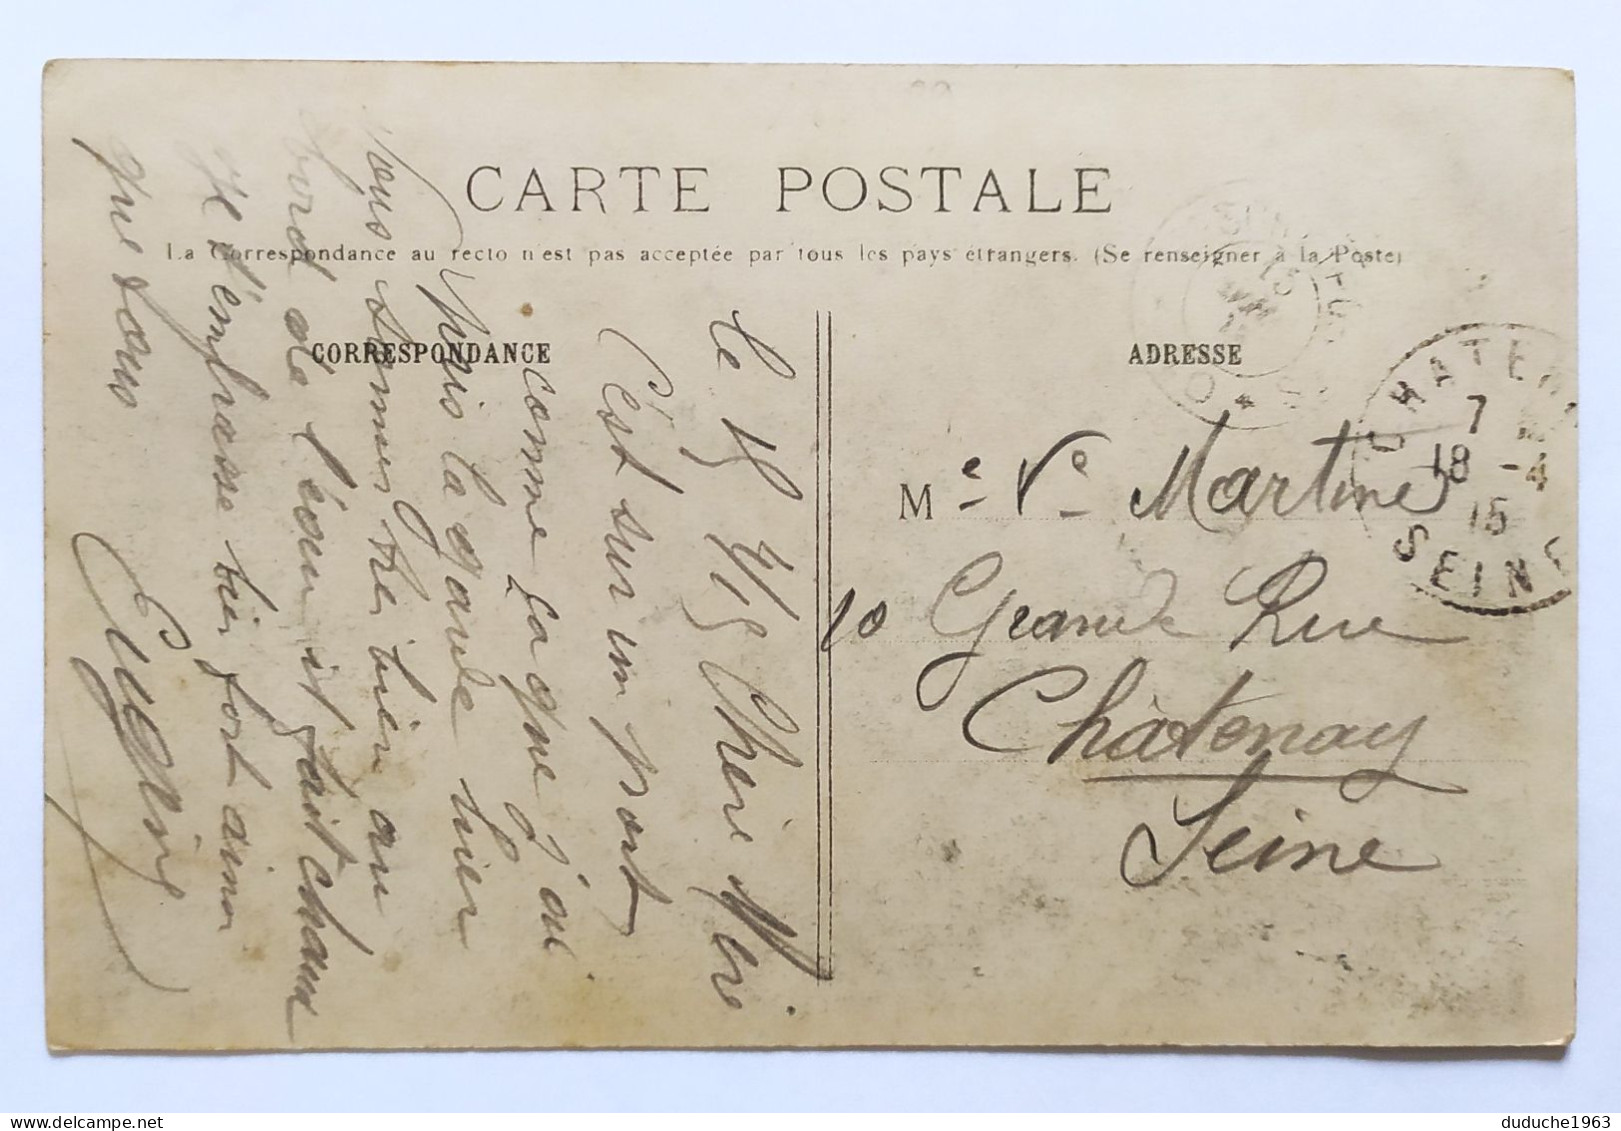 CARTE POSTALE
La Correspondance au recto n'est pas acceptée par tous les pays étrangers. (Se renseigner à la Poste)
CORRESPONDANCE
ADRESSE
le 15/4/15 Chère Mère
C'est sur un pont
comme ça que j'ai
pris la garde hier
nous sommes très bien au
bord de l'eau il fait chaud
Je t'embrasse bien fort ainsi
que
Eugène
Me Ve Martine
10 Grande Rue
Châtenay
Seine
CHATEN
7
18 -4
15
SEINE
duduche1963